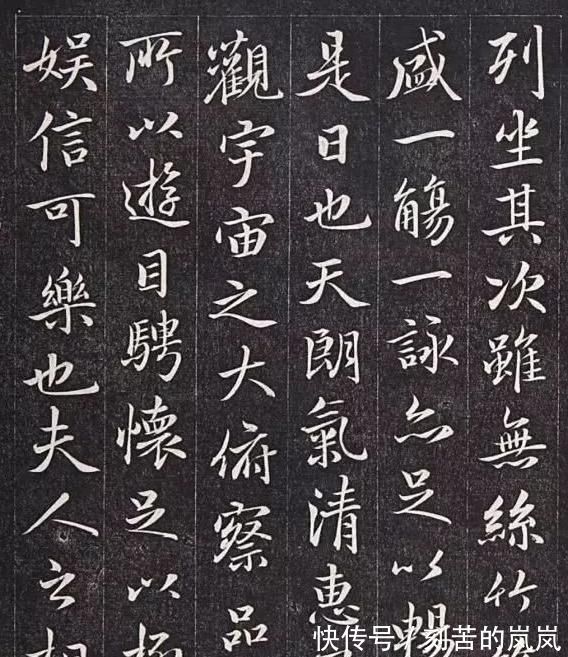 列坐其次雖無絲竹
盛一觴一詠亦足以暢
是日也天朗氣清惠
觀宇宙之大俯察品
所以遊目騁懷足以極
娱信可樂也夫人之相
快传号 刻苦的岚岚